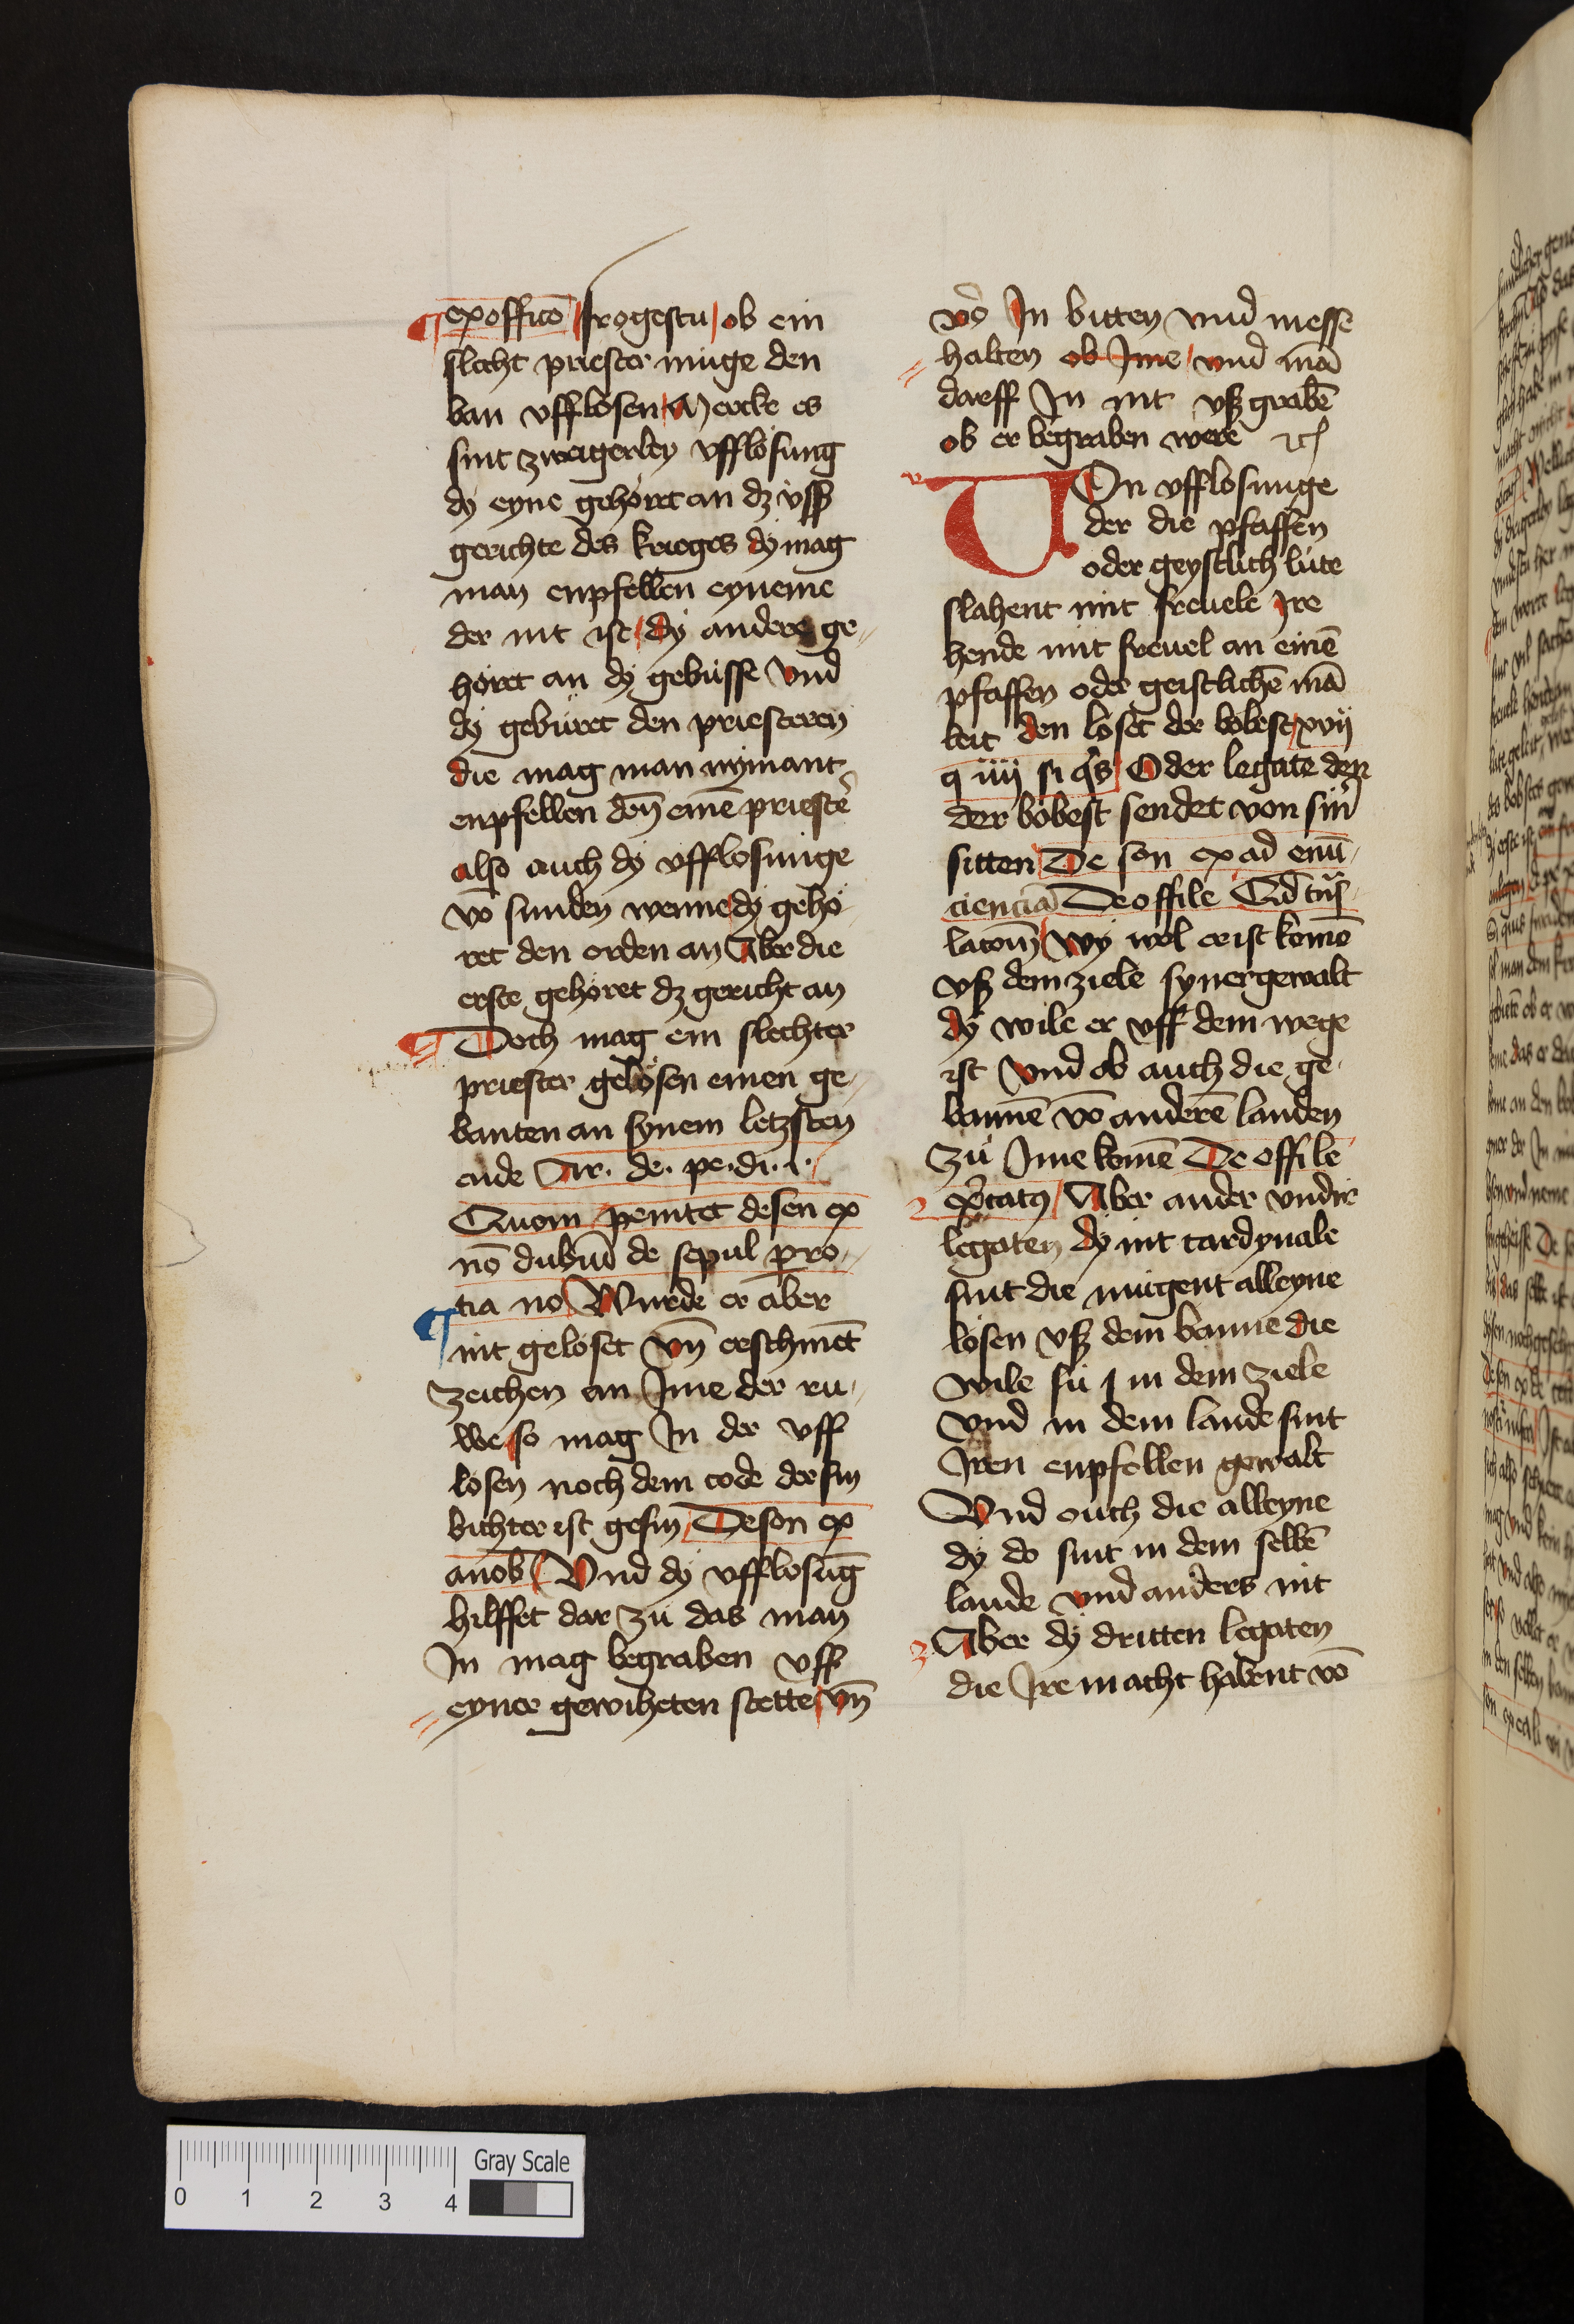 ex officō frogestu ob ein
slecht priester muge den
ban vfflosen Mercke es
sint zweigerley vfflosung
dy eyne gehoret an dz vssz
gerichte des krieges dy mag
man enpfellen eyneme
der nit ist dy andere ge-
horet an dy gebüsse vnd
dy gebüret den priesteren
die mag man nymant
enpfellen deñ einē priestē
also auch dy vfflosunge
vō sunden wenne dy geho-
ret den orden an Aber die
erste gehoret dz gericht an
Doch mag ein slechter
priester gelosen einen ge-
banten an synem letzsten
ende Ar. de. pe. di. i.
Quom penitet de sen ex
nō dubiū de sepul pro-
tia no Wurde er aber
nit geloset vñ erschinēt
zeichen an Jme der ru-
we so mag Jn der vff
losen noch dem tode der sin
bichter ist gesin De sen ex
a nob Vnd dy vfflosūg
hilffet dar zu das man
Jn mag begraben vff
eyner gewiheten stette vñ
Jn bitten vnd messe
halten ob Jme vnd mā
darff Jn nit vsz grabē
ob er begraben were etc
VOn vfflosunge
der die pfaffen
oder geystlich lute
slahent mit freuele Jre
hende mit freuel an einē
pfaffen oder geistlichē mā
leit den loset der bobest xvij
q iiij si q's Oder legate den
der bobest sendet von sin'
sitten De sen ex ad emi-
nenciā De offi le Ad
wy wol er ist komē
vsz dem ziele syner gewalt
dy wile er vff dem wege
ist vnd ob auch die ge-
bannē vō anderē landen
zu Jme komē De offi le
Aber ander vnd'
legaten dy nit cardynale
sint die mugent alleyne
losen vsz dem banne die
wile sü j in dem ziele
vnd in dem lande sint
Jren enpfollen gewalt
Vnd ouch die alleyne
dy do sint in dem selbē
lande vnd anders nit
Aber dy dritten legaten
die Jre macht habent vō
0 1 2 3 4 Gray Scale